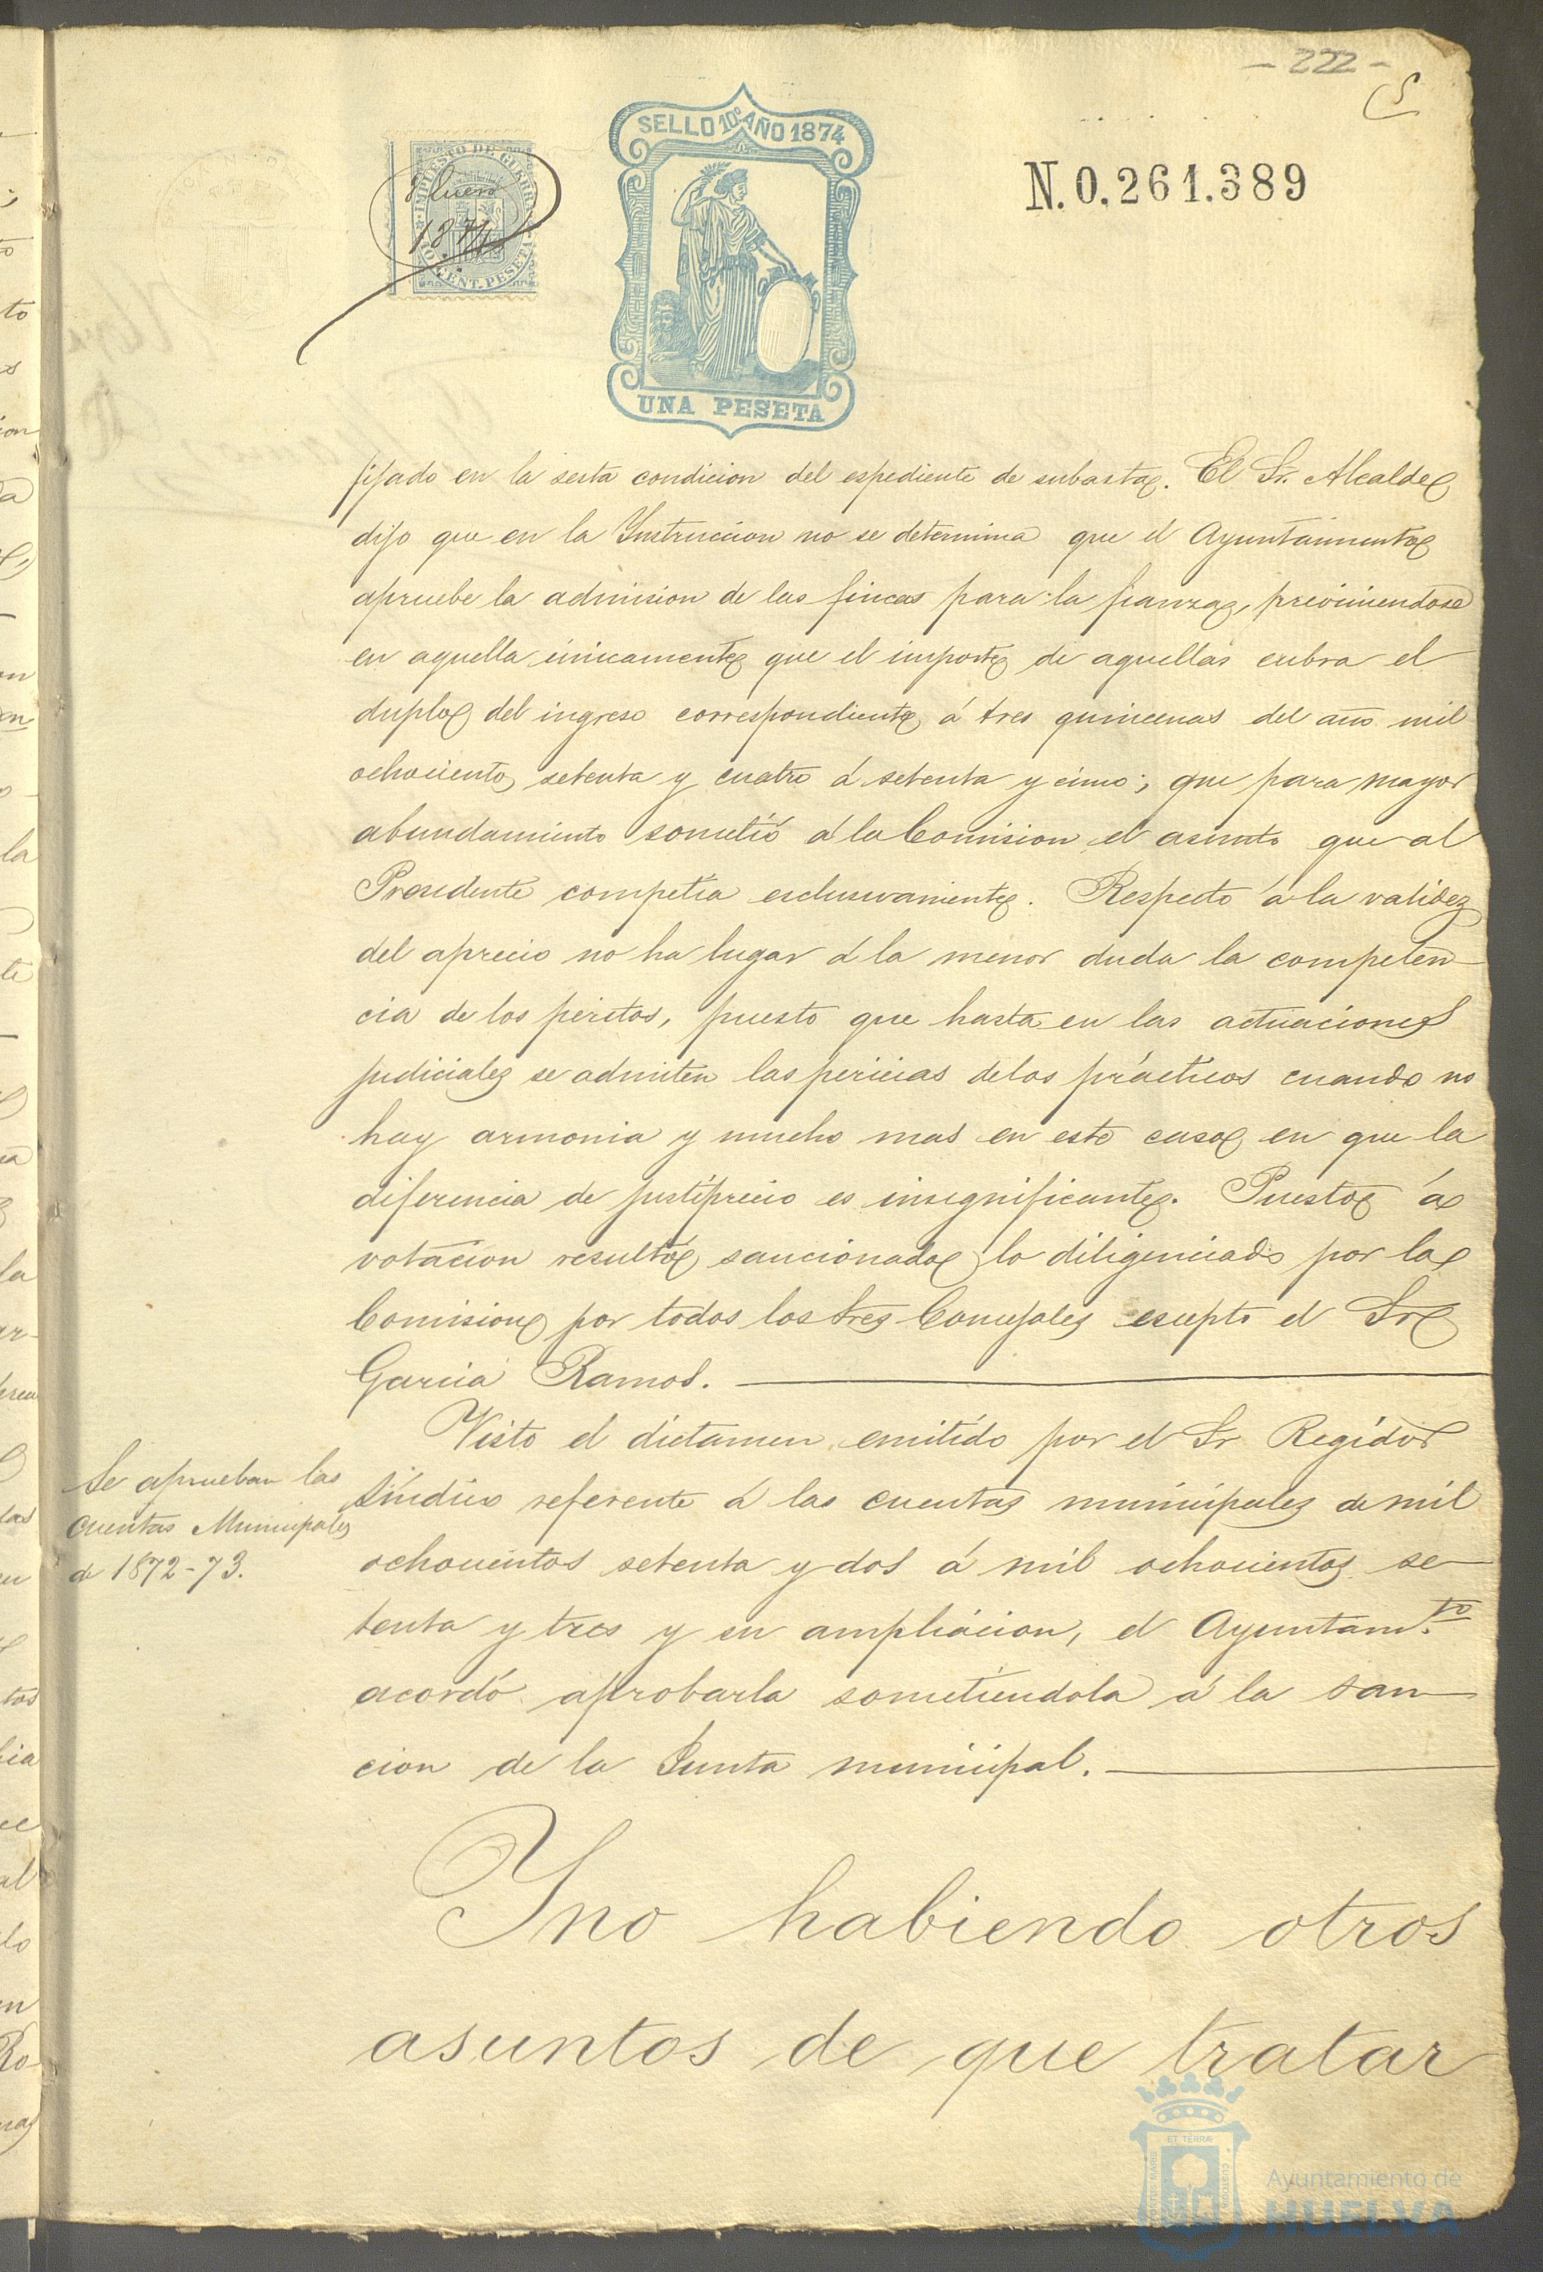 - 222 -
SELLO 10º AÑO 1874
IMPUESTO DE GUERRA
Enero
1874
10 CENT. PESETA
N. 0.261.389
UNA PESETA
fijado en la sesta condicion del espediente de subasta. El Sr. Alcalde
dijo que en la Instruccion no se determina que el Ayuntamiento
apruebe la admision de las fincas para la fianza, previniendose
en aquella únicamente que el importe de aquellas cubra el
duplo del ingreso correspondiente á tres quincenas del año mil
ochocientos setenta y cuatro á setenta y cinco; que para mayor
abundamiento sometió á la Comision el asunto que al
Presidente competia esclusivamente. Respecto á la validez
del aprecio no ha lugar á la menor duda la competen
cia de los peritos, puesto que hasta en las actuaciones
judiciales se admiten las pericias de los prácticos cuando no
hay armonia y mucho mas en este caso en que la
diferencia de justiprecio es insignificante. Puesto á
votacion resultó sancionado lo diligenciado por la
Comision por todos los Sres Concejales escepto el Sr
Garcia Ramos.
Se aprueban las
cuentas Municipales
de 1872-73.
Visto el dictamen emitido por el Sr Regidor
Síndico referente á las cuentas municipales de mil
ochocientos setenta y dos á mil ochocientos se
tenta y tres y su ampliacion, el Ayuntam.to
acordó aprobarla sometiendola á la san
cion de la Junta municipal.
Y no habiendo otros
asuntos de que tratar
ET TERRÆ
Ayuntamiento de
HUELVA